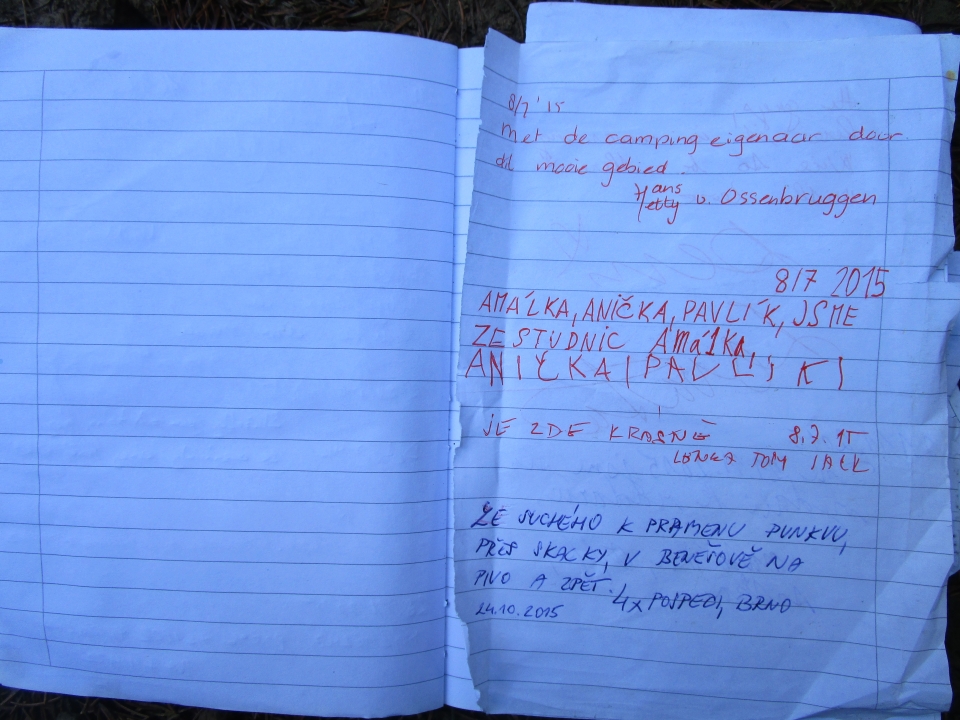 8/7 '15
Met de camping eigenaar door
dit mooie gebied.
Hans
Hetty v. Ossenbruggen
8/7 2015
AMÁLKA, ANIČKA, PAVLÍK, JSME
ZE STUDNIC Amálka,
ANIČKA PAVLÍK
JE ZDE KRÁSNĚ 8.7.15
LENKA TOM
ZE SUCHÉHO K PRAMENU PUNKVY,
PŘES SKALKY, V BENEŠOVĚ NA
PIVO A ZPĚT. 4x POSPECI, BRNO
24.10.2015